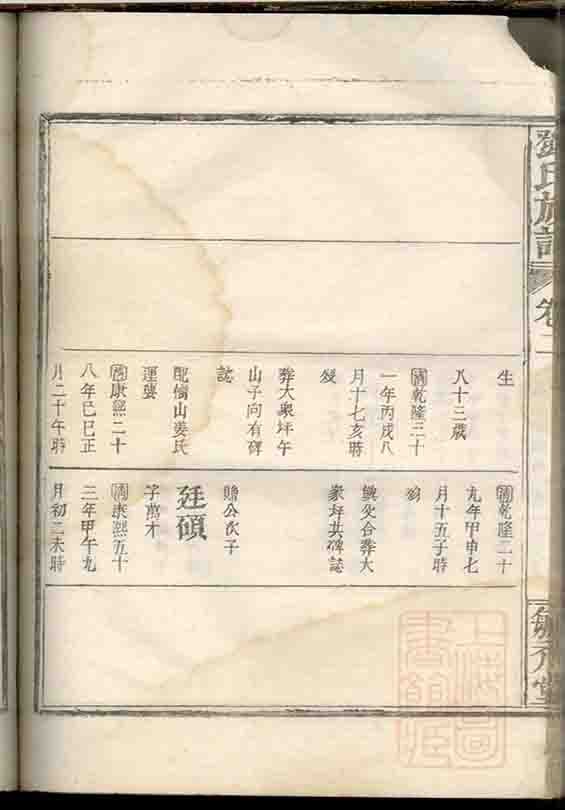 氏族譜
卷二
生
八十三歲
清乾隆三十
一年丙戌八
月十七亥時
歿
葬大眾坪午
山子向有碑
誌
配橋山姜氏
運嬰
清康熙二十
八年己巳正
月二十午時
清乾隆二十
九年甲申七
月十五子時
歿
與父合葬大
眾坪共碑誌
贈公次子
廷碩
字萬才
清康熙五十
三年甲午九
月初二未時
堂
上海圖
書館藏